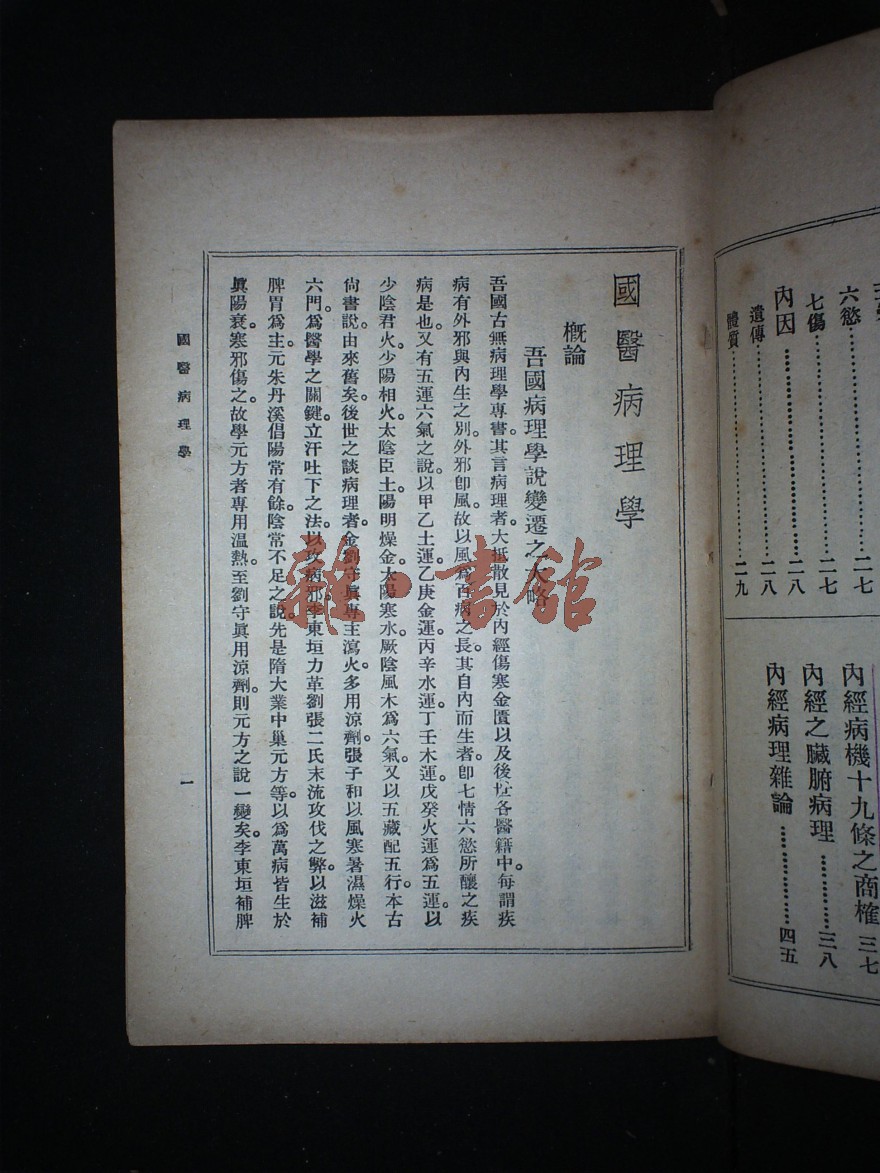 六慾……………二七
七傷……………二七
內因……………二八
遺傳……………二八
體質……………二九
內經病機十九條之商榷 三七
內經之臟腑病理……………三八
內經病理雜論……………四五
國醫病理學
概論
吾國病理學說變遷之大略
吾國古無病理學專書。其言病理者。大抵散見於內經傷寒金匱以及後世各醫籍中。每謂疾
病有外邪與內生之別。外邪卽風。故以風爲百病之長。其自內而生者。卽七情六慾所釀之疾
病是也。又有五運六氣之說。以甲乙土運。乙庚金運。丙辛水運。丁壬木運。戊癸火運爲五運。以
少陰君火。少陽相火。太陰臣土。陽明燥金。太陽寒水。厥陰風木爲六氣。又以五藏配五行。本古
尙書說。由來舊矣。後世之談病理者。金劉守眞專主瀉火。多用涼劑。張子和以風寒暑濕燥火
六門。爲醫學之關鍵。立汗吐下之法。以攻病邪。李東垣力革劉張二氏末流攻伐之弊。以滋補
脾胃爲主。元朱丹溪倡陽常有餘。陰常不足之說。先是隋大業中巢元方等。以爲萬病皆生於
眞陽衰。寒邪傷之。故學元方者專用溫熱。至劉守眞用涼劑。則元方之說一變矣。李東垣補脾
國醫病理學
一
雜·書館